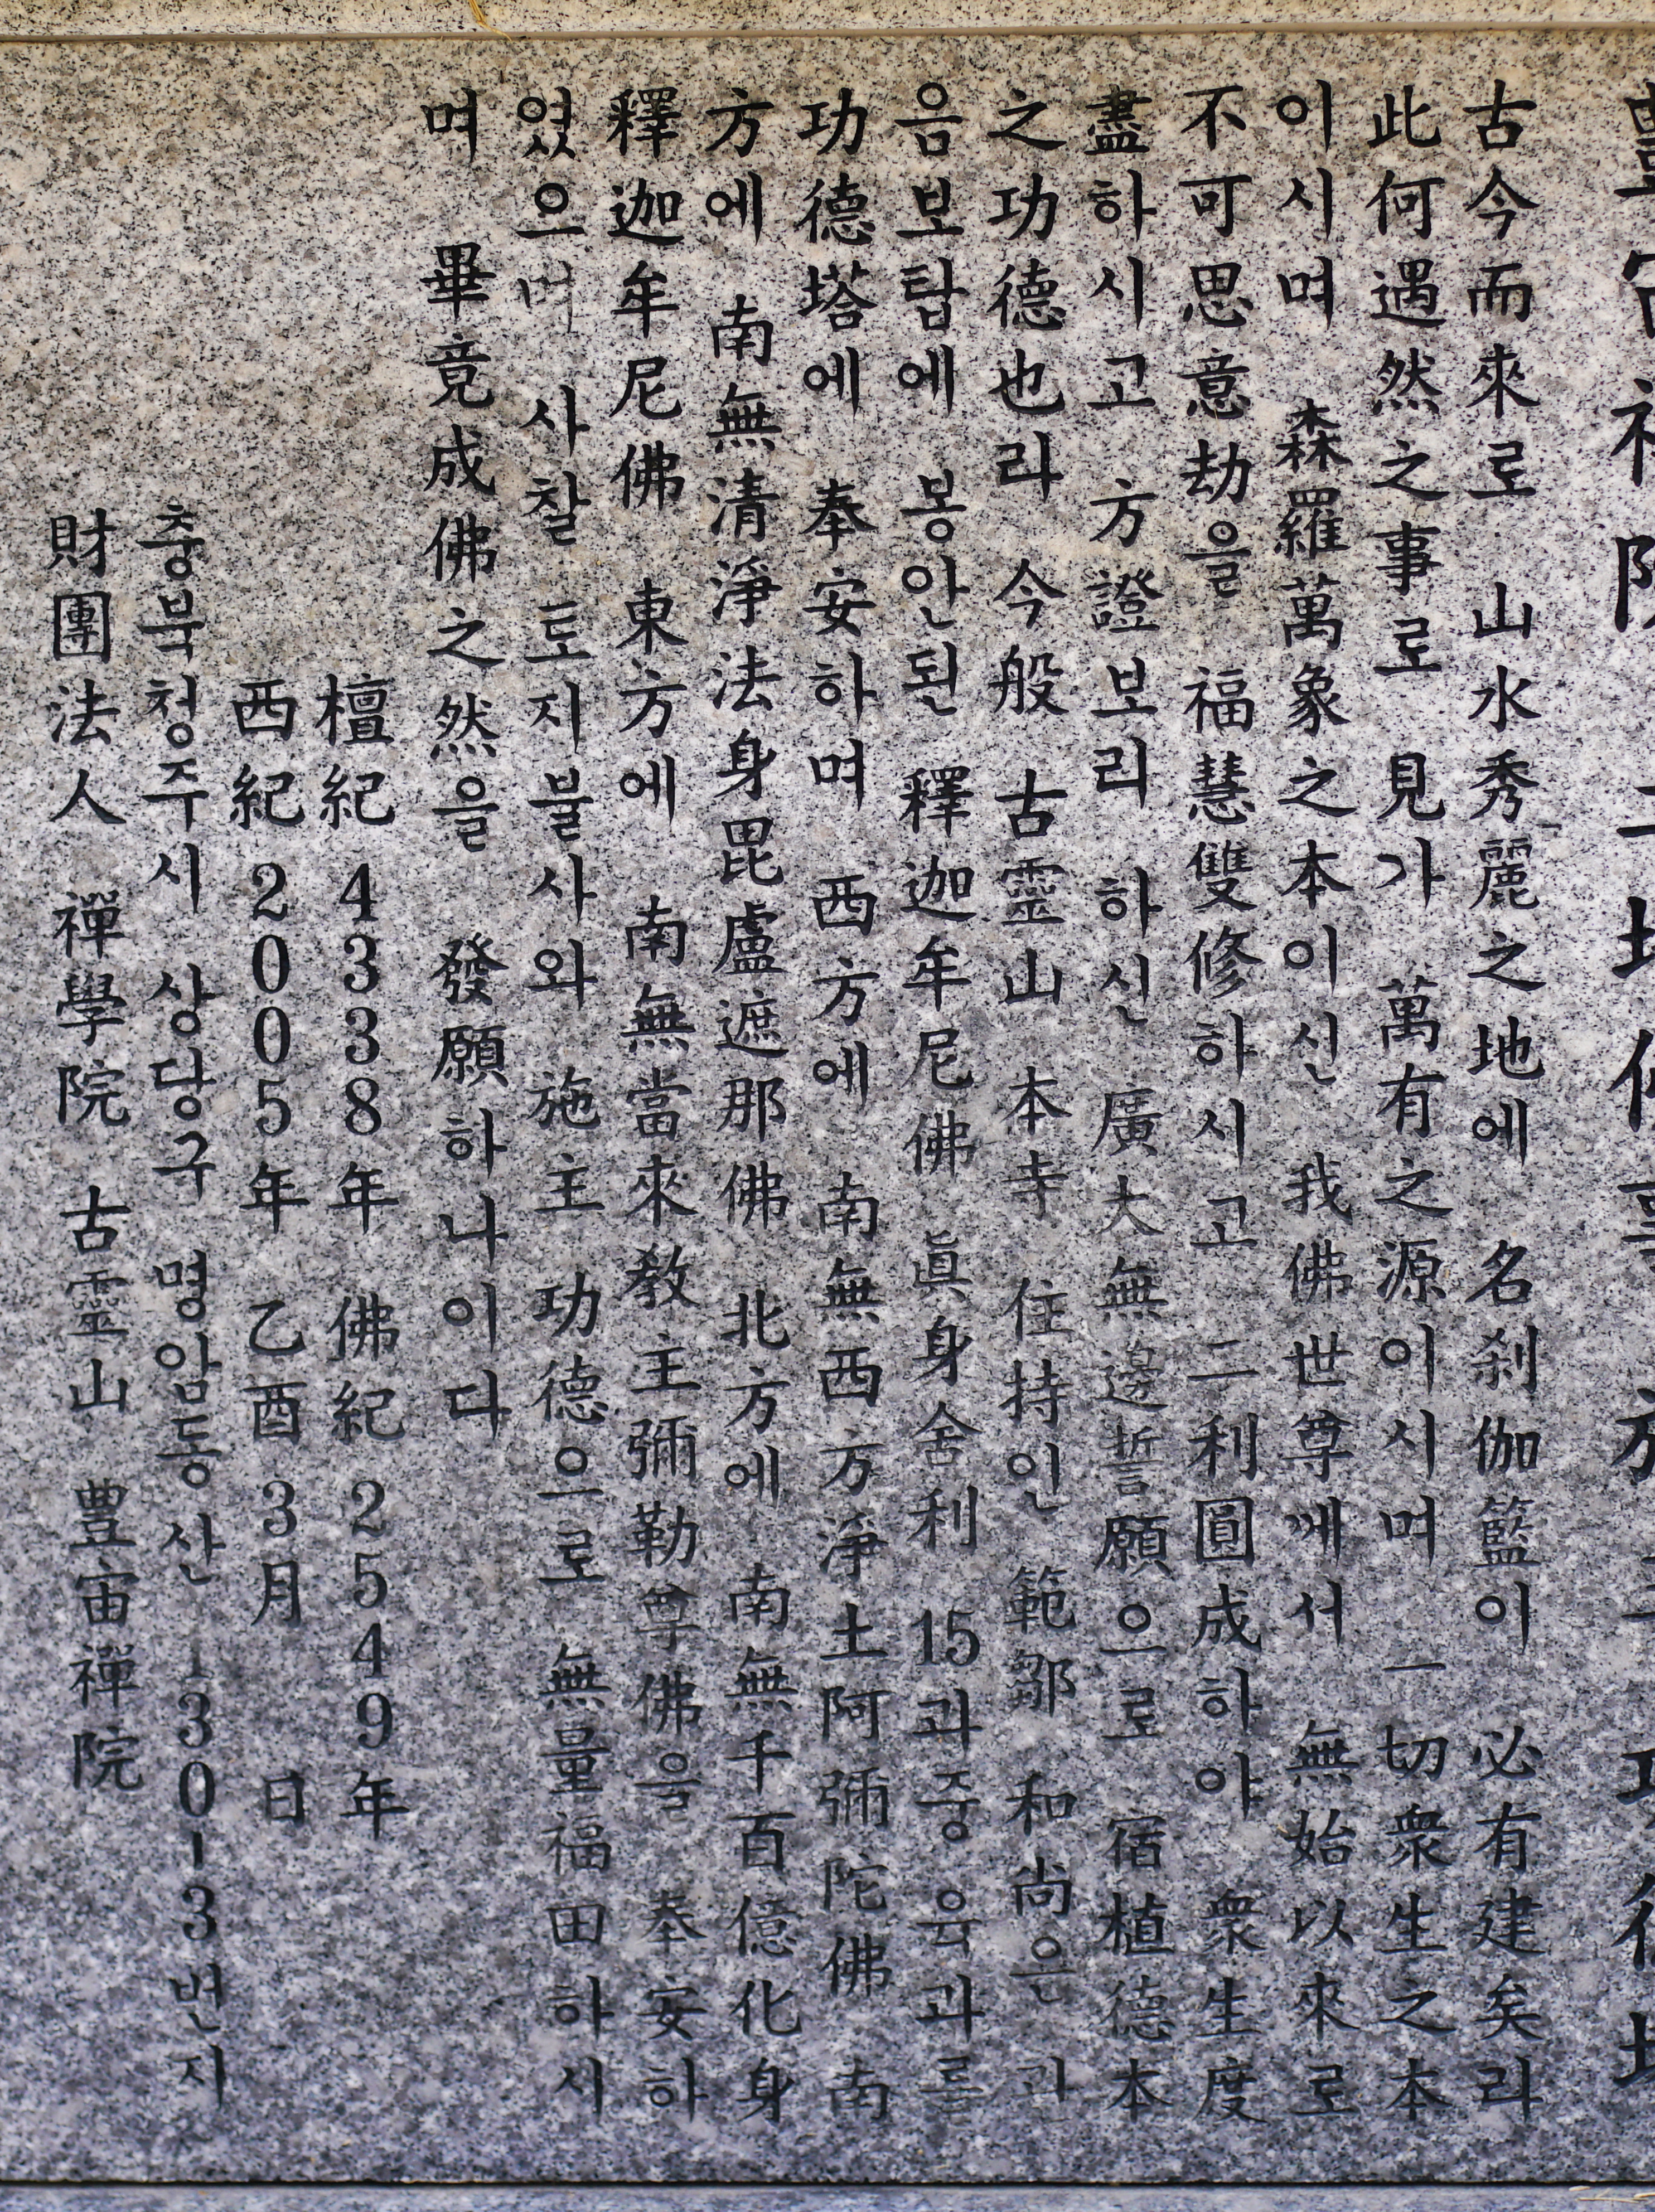 古今而來로 山水秀麗之地에 名刹伽籃이 必有建矣라
此何遇然之事로 見가 萬有之源이시며 一切衆生之本
이시며 森羅萬象之本이신 我佛世尊께서 無始以來로
不可思意劫을 福慧雙修하시고 二利圓成하야 衆生度
盡하시고 方證보리 하신 廣大無邊誓願으로 宿植德本
之功德也라 今般 古靈山 本寺 住持인 範鄒 和尚은 관
음보탑에 봉안된 釋迦牟尼佛 眞身舍利 15과중 육과를
功德塔에 奉安하며 西方에 南無西方淨土阿彌陀佛 南
方에 南無清淨法身毘盧遮那佛 北方에 南無千百億化身
釋迦牟尼佛 東方에 南無當來教主彌勒尊佛을 奉安하
였으며 사찰 토지불사와 施主 功德으로 無量福田하시
며 畢竟成佛之然을 發願하나이다
檀紀 4338年 佛紀 2549年
西紀 2005年 乙酉 3月 日
충북청주시 상당구 명암동산 130-3번지
財團法人 禪學院 古靈山 豊宙禪院